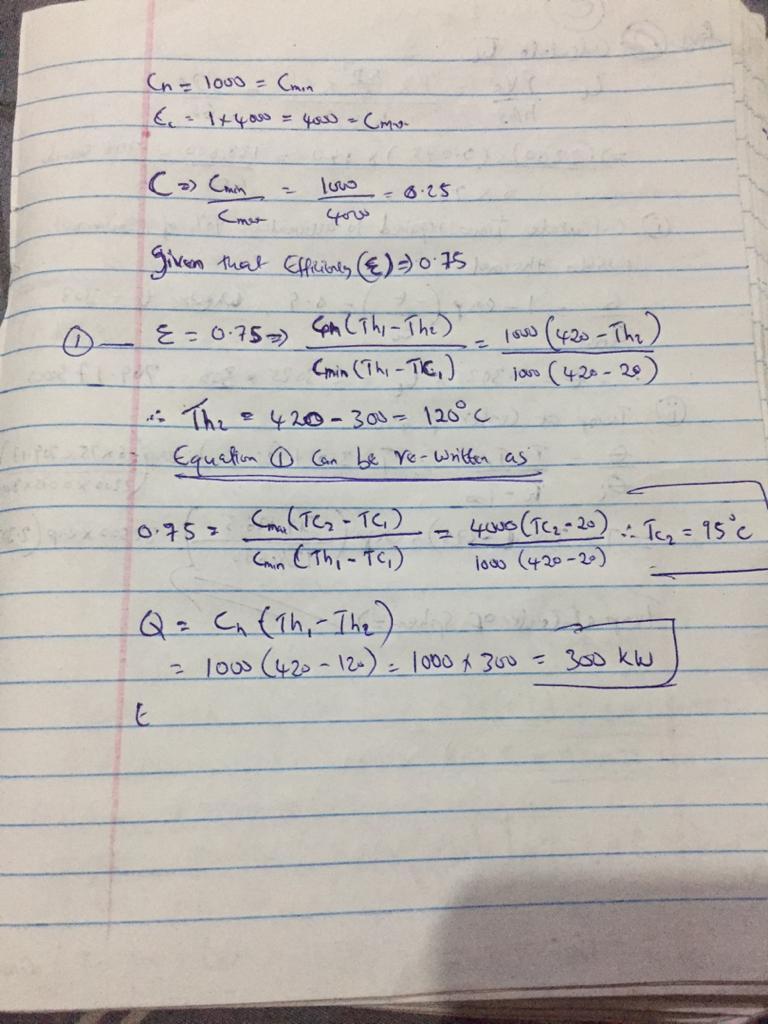 Ch = 1000 = Cmin
Cc = 1x4000 = 4000 = Cmax
C => Cmin/Cmax = 1000/4000 = 0.25
Given that Efficiency (ε) => 0.75
① — ε = 0.75 => Ch (Th1 - Th2) / Cmin (Th1 - Tc1) = 1000 (420 - Th2) / 1000 (420 - 20)
∴ Th2 = 420 - 300 = 120°C
Equation ① can be re-written as
0.75 = Cmax (Tc2 - Tc1) / Cmin (Th1 - Tc1) = 4000 (Tc2 - 20) / 1000 (420 - 20) ∴ Tc2 = 95°C
Q = Ch (Th1 - Th2)
= 1000 (420 - 120) = 1000 x 300 = 300 kW
t